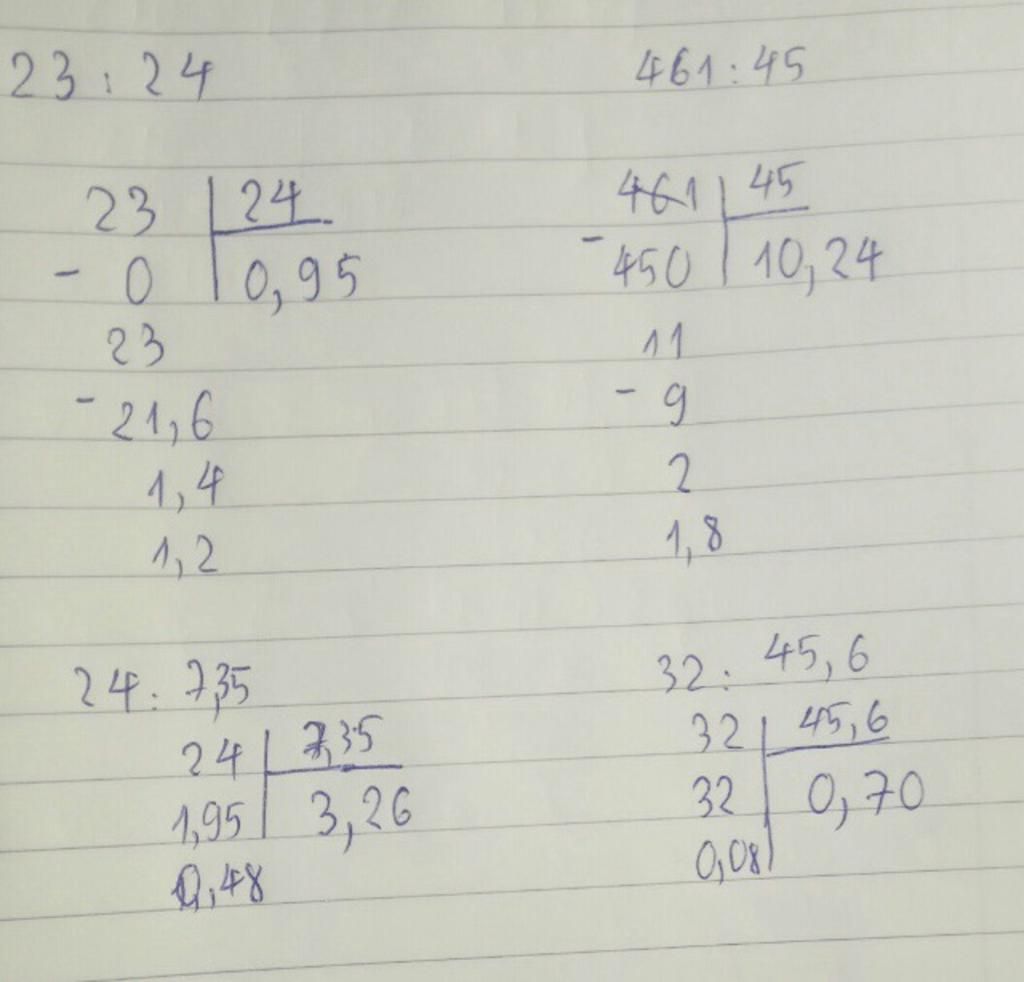 23 : 24
23 | 24
- 0 | 0,95
23
- 21,6
1,4
1,2
461 : 45
461 | 45
- 450 | 10,24
11
- 9
2
1,8
24 : 7,35
24 | 7,35
1,95 | 3,26
0,48
32 : 45,6
32 | 45,6
32 | 0,70
0,08